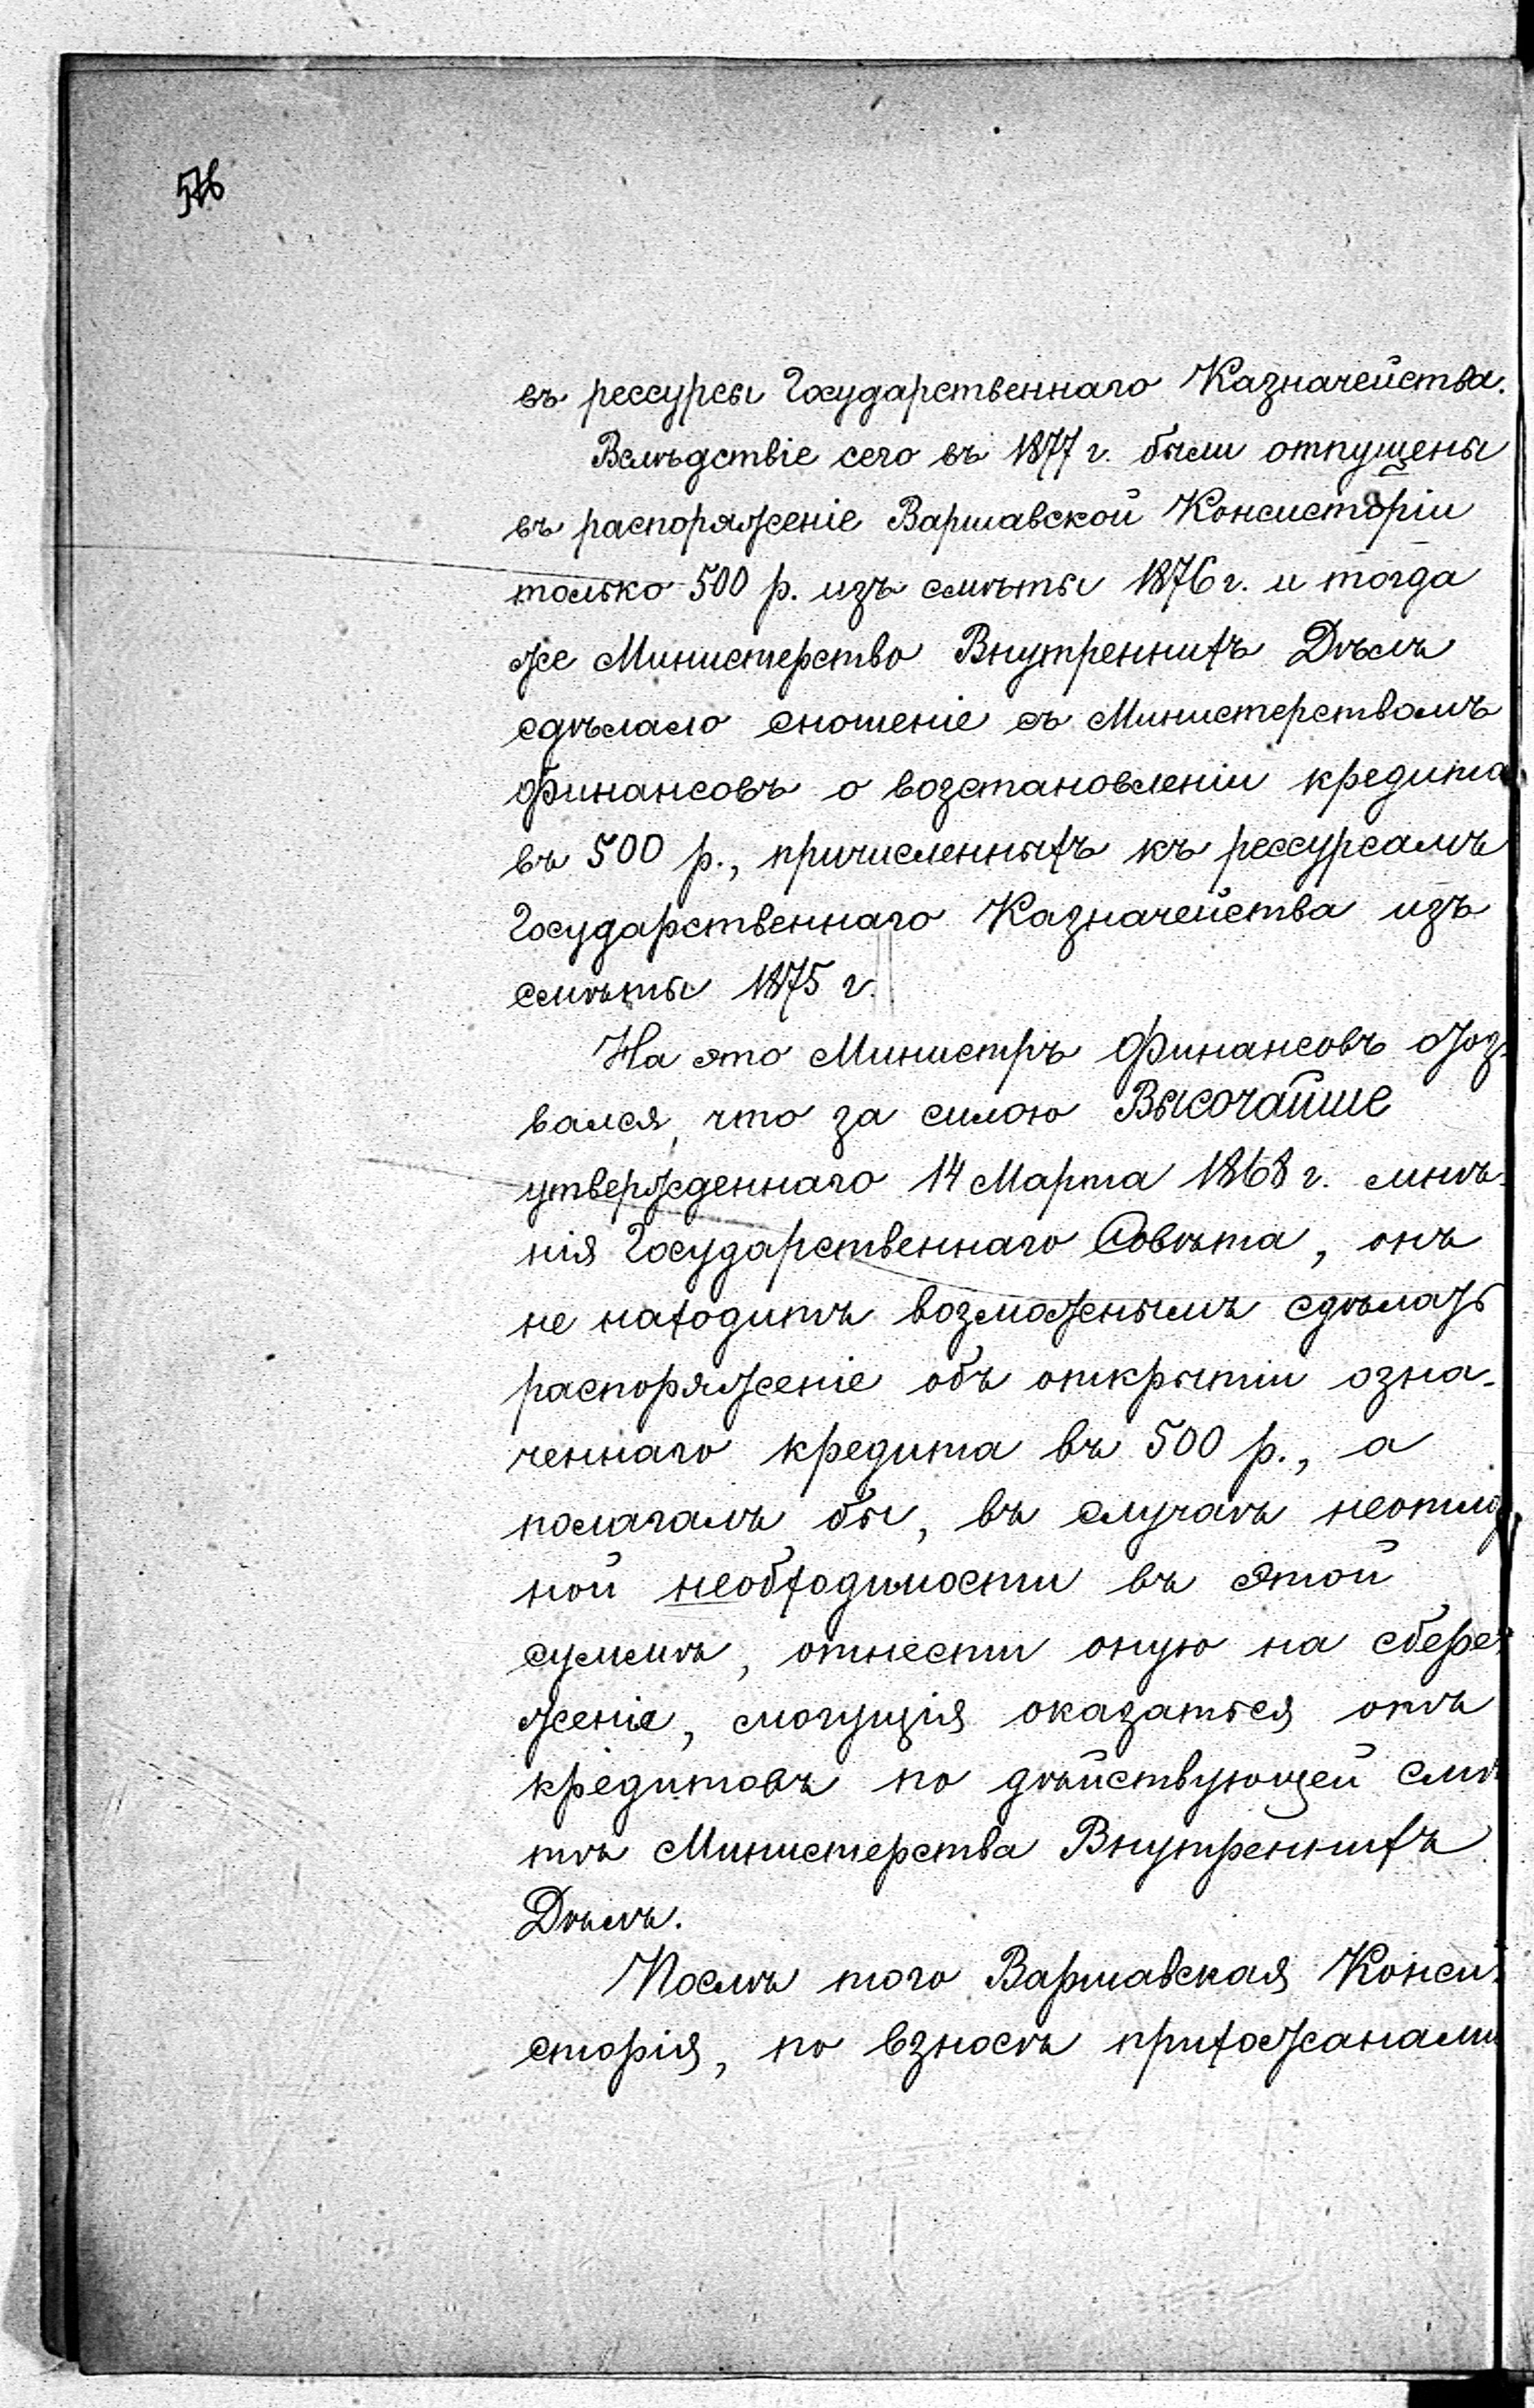 въ рессурсы Государственнаго Казначейства.
Вслѣдствіе сего въ 1877 г. были отпущены
въ распоряженіе Варшавской Консисторіи
только 500 р. изъ смѣты 1876 г. и тогда
же Министерство Внутреннихъ Дѣлъ
сдѣлало сношеніе съ Министерствомъ
Финансовъ о возстановленіи кредита
въ 500 р., причисленныхъ къ рессурсамъ
Государственнаго Казначейства изъ
смѣты 1875 г.
На это Министръ Финансовъ отоз-
вался, что за силою Высочайше
утвержденнаго 14 Марта 1868 г. мнѣ-
нія Государственнаго Совѣта, онъ
не находитъ возможнымъ сдѣлать
распоряженіе объ открытіи озна-
ченнаго кредита въ 500 р., а
полагалъ бы, въ случаѣ неотлож
ной необходимости въ этой
суммѣ, отнести оную на сбере-
женіе, могущія оказаться отъ
кредитовъ по дѣйствующей смѣ
тѣ Министерства Внутреннихъ
Дѣлъ.
Послѣ того Варшавская Конси-
сторія, по взносѣ прихожанами